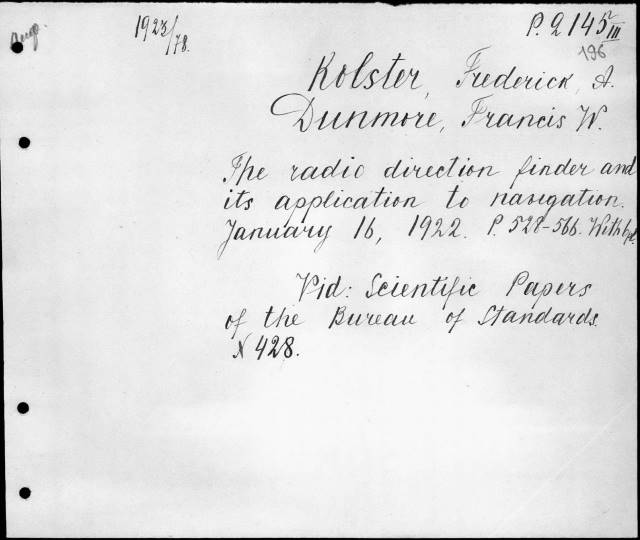 Ang.
1923/78.
P. 2145/III
196
Kolster, Frederick, A.
Dunmore, Francis W.
The radio direction finder and
its application to navigation.
January 16, 1922. P. 528-566. With
Vid: Scientific Papers
of the Bureau of Standards.
N 428.